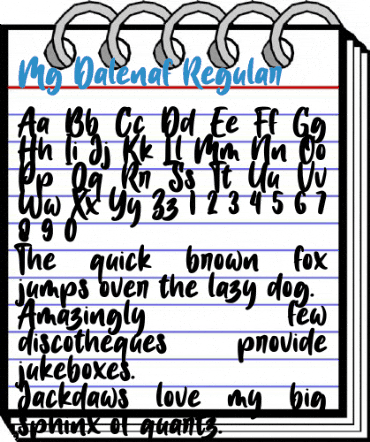 Mg Dalenaf Regular
Aa Bb Cc Dd Ee Ff Gg
Hh Ii Jj Kk Ll Mm Nn Oo
Pp Qq Rr Ss Tt Uu Vv
Ww Xx Yy Zz 1 2 3 4 5 6 7
8 9 0
The quick brown fox
jumps over the lazy dog.
Amazingly few
discotheques provide
jukeboxes.
Jackdaws love my big
sphinx of quartz.